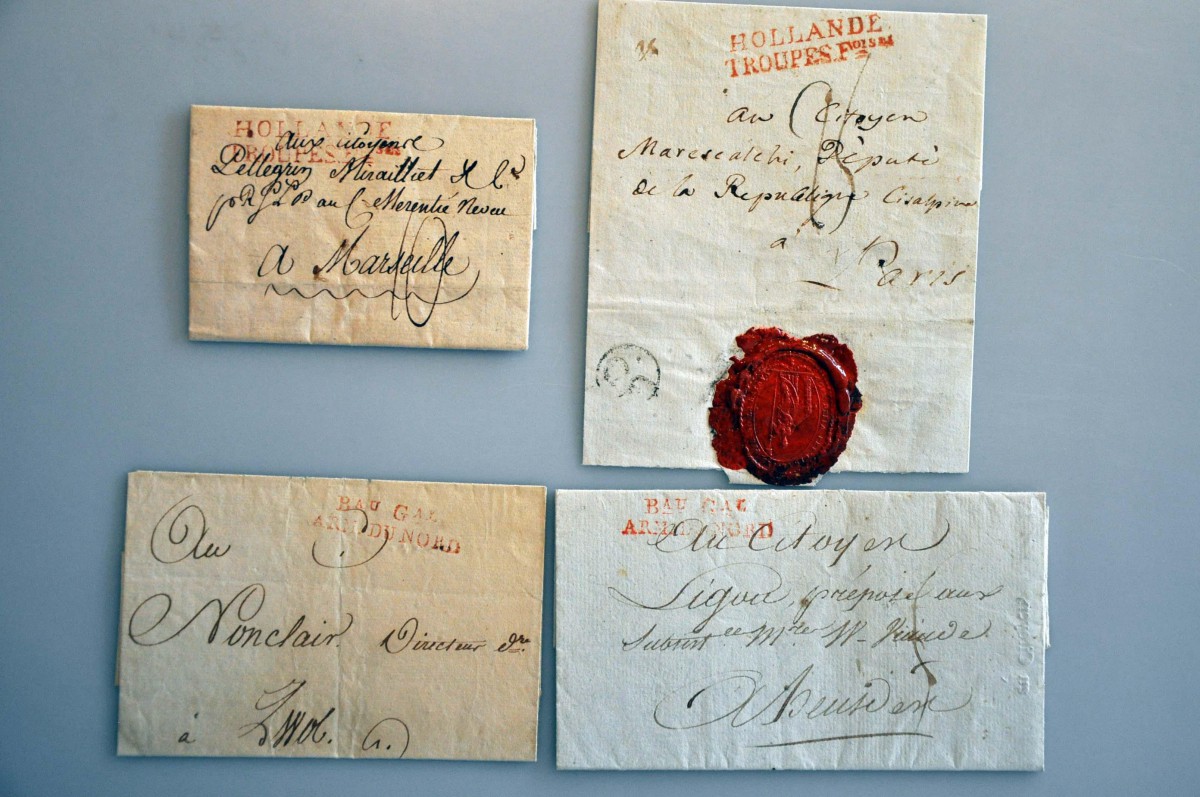 HOLLANDE
TROUPES.F
aux Citoyens
Pellegrin Mirailliet & C
au C. Merentié Neveu
A Marseille
10
HOLLANDE
TROUPES.F
au Citoyen
Marescalchi, Député
de la République Cisalpine
à
Paris
BAU GAL
ARM.DU NORD
Au C.
Nonclair. Directeur
à Zwol.
BAU GAL
ARM.DU NORD
Au Citoyen
Ligou, préposé aux
Subsist
A heusden